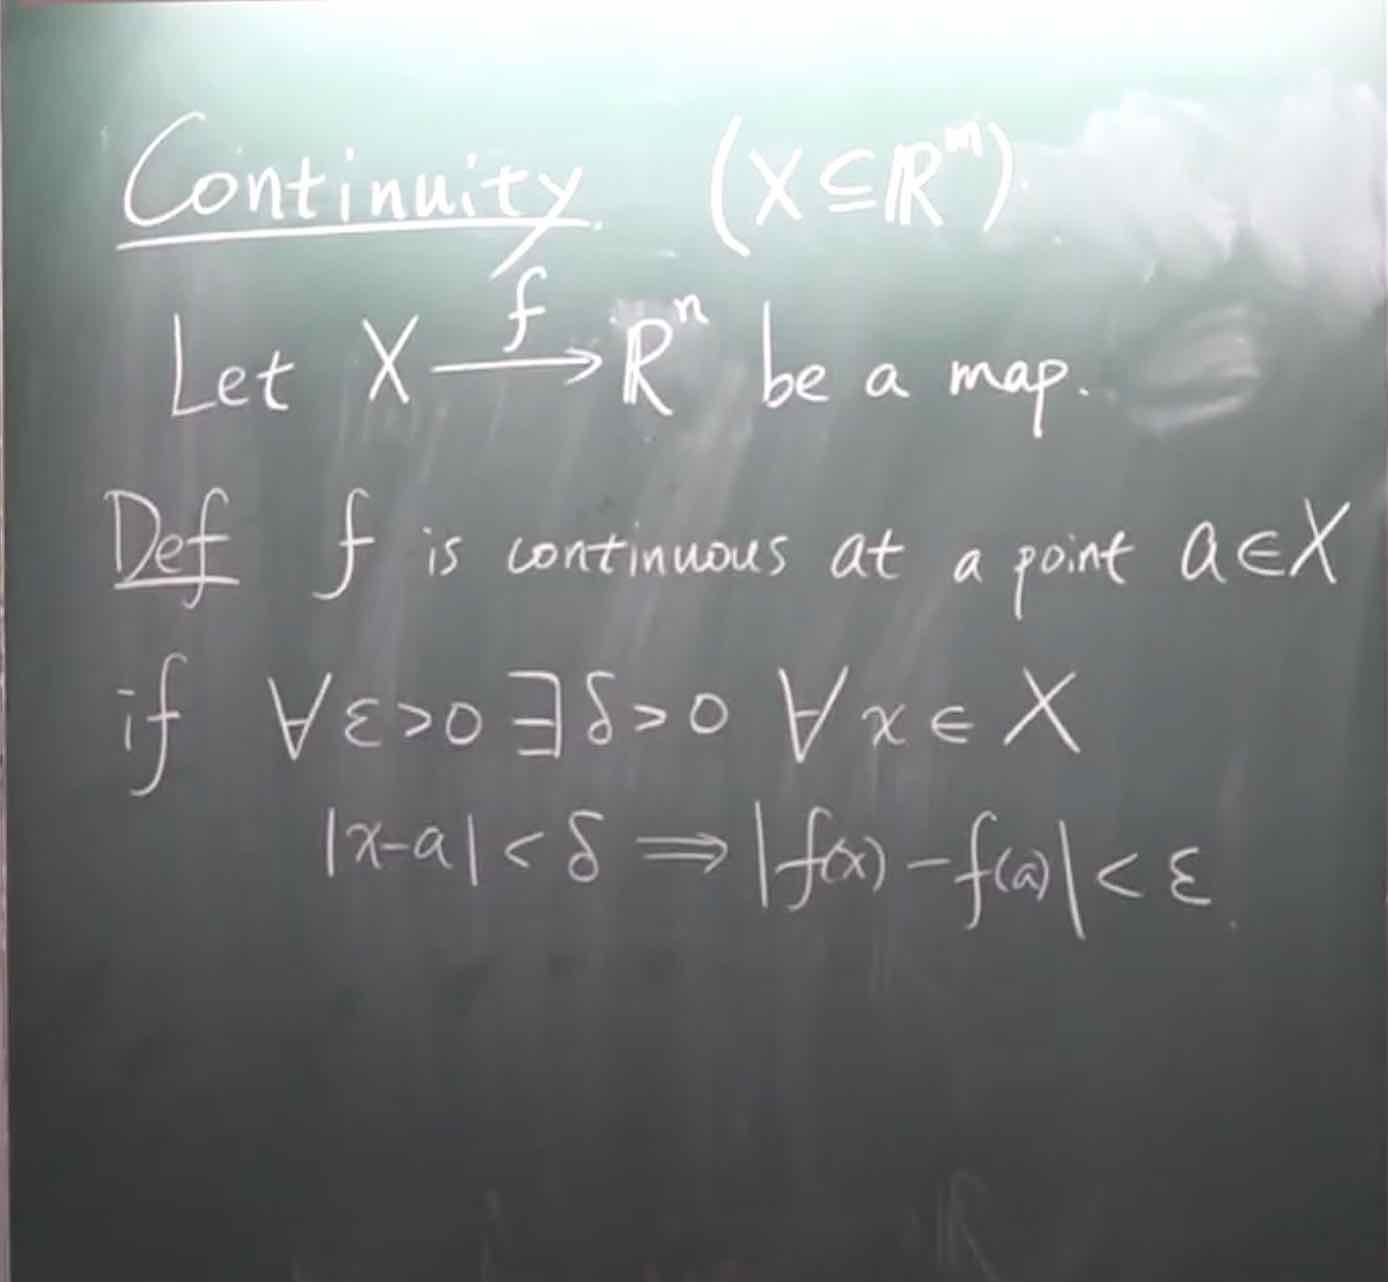 Continuity. (X⊆ℝᵐ).
Let X —f→ ℝⁿ be a map.
Def f is continuous at a point a∈X
if ∀ε>0 ∃δ>0 ∀x∈X
|x-a|<δ ⟹ |f(x)-f(a)|<ε.